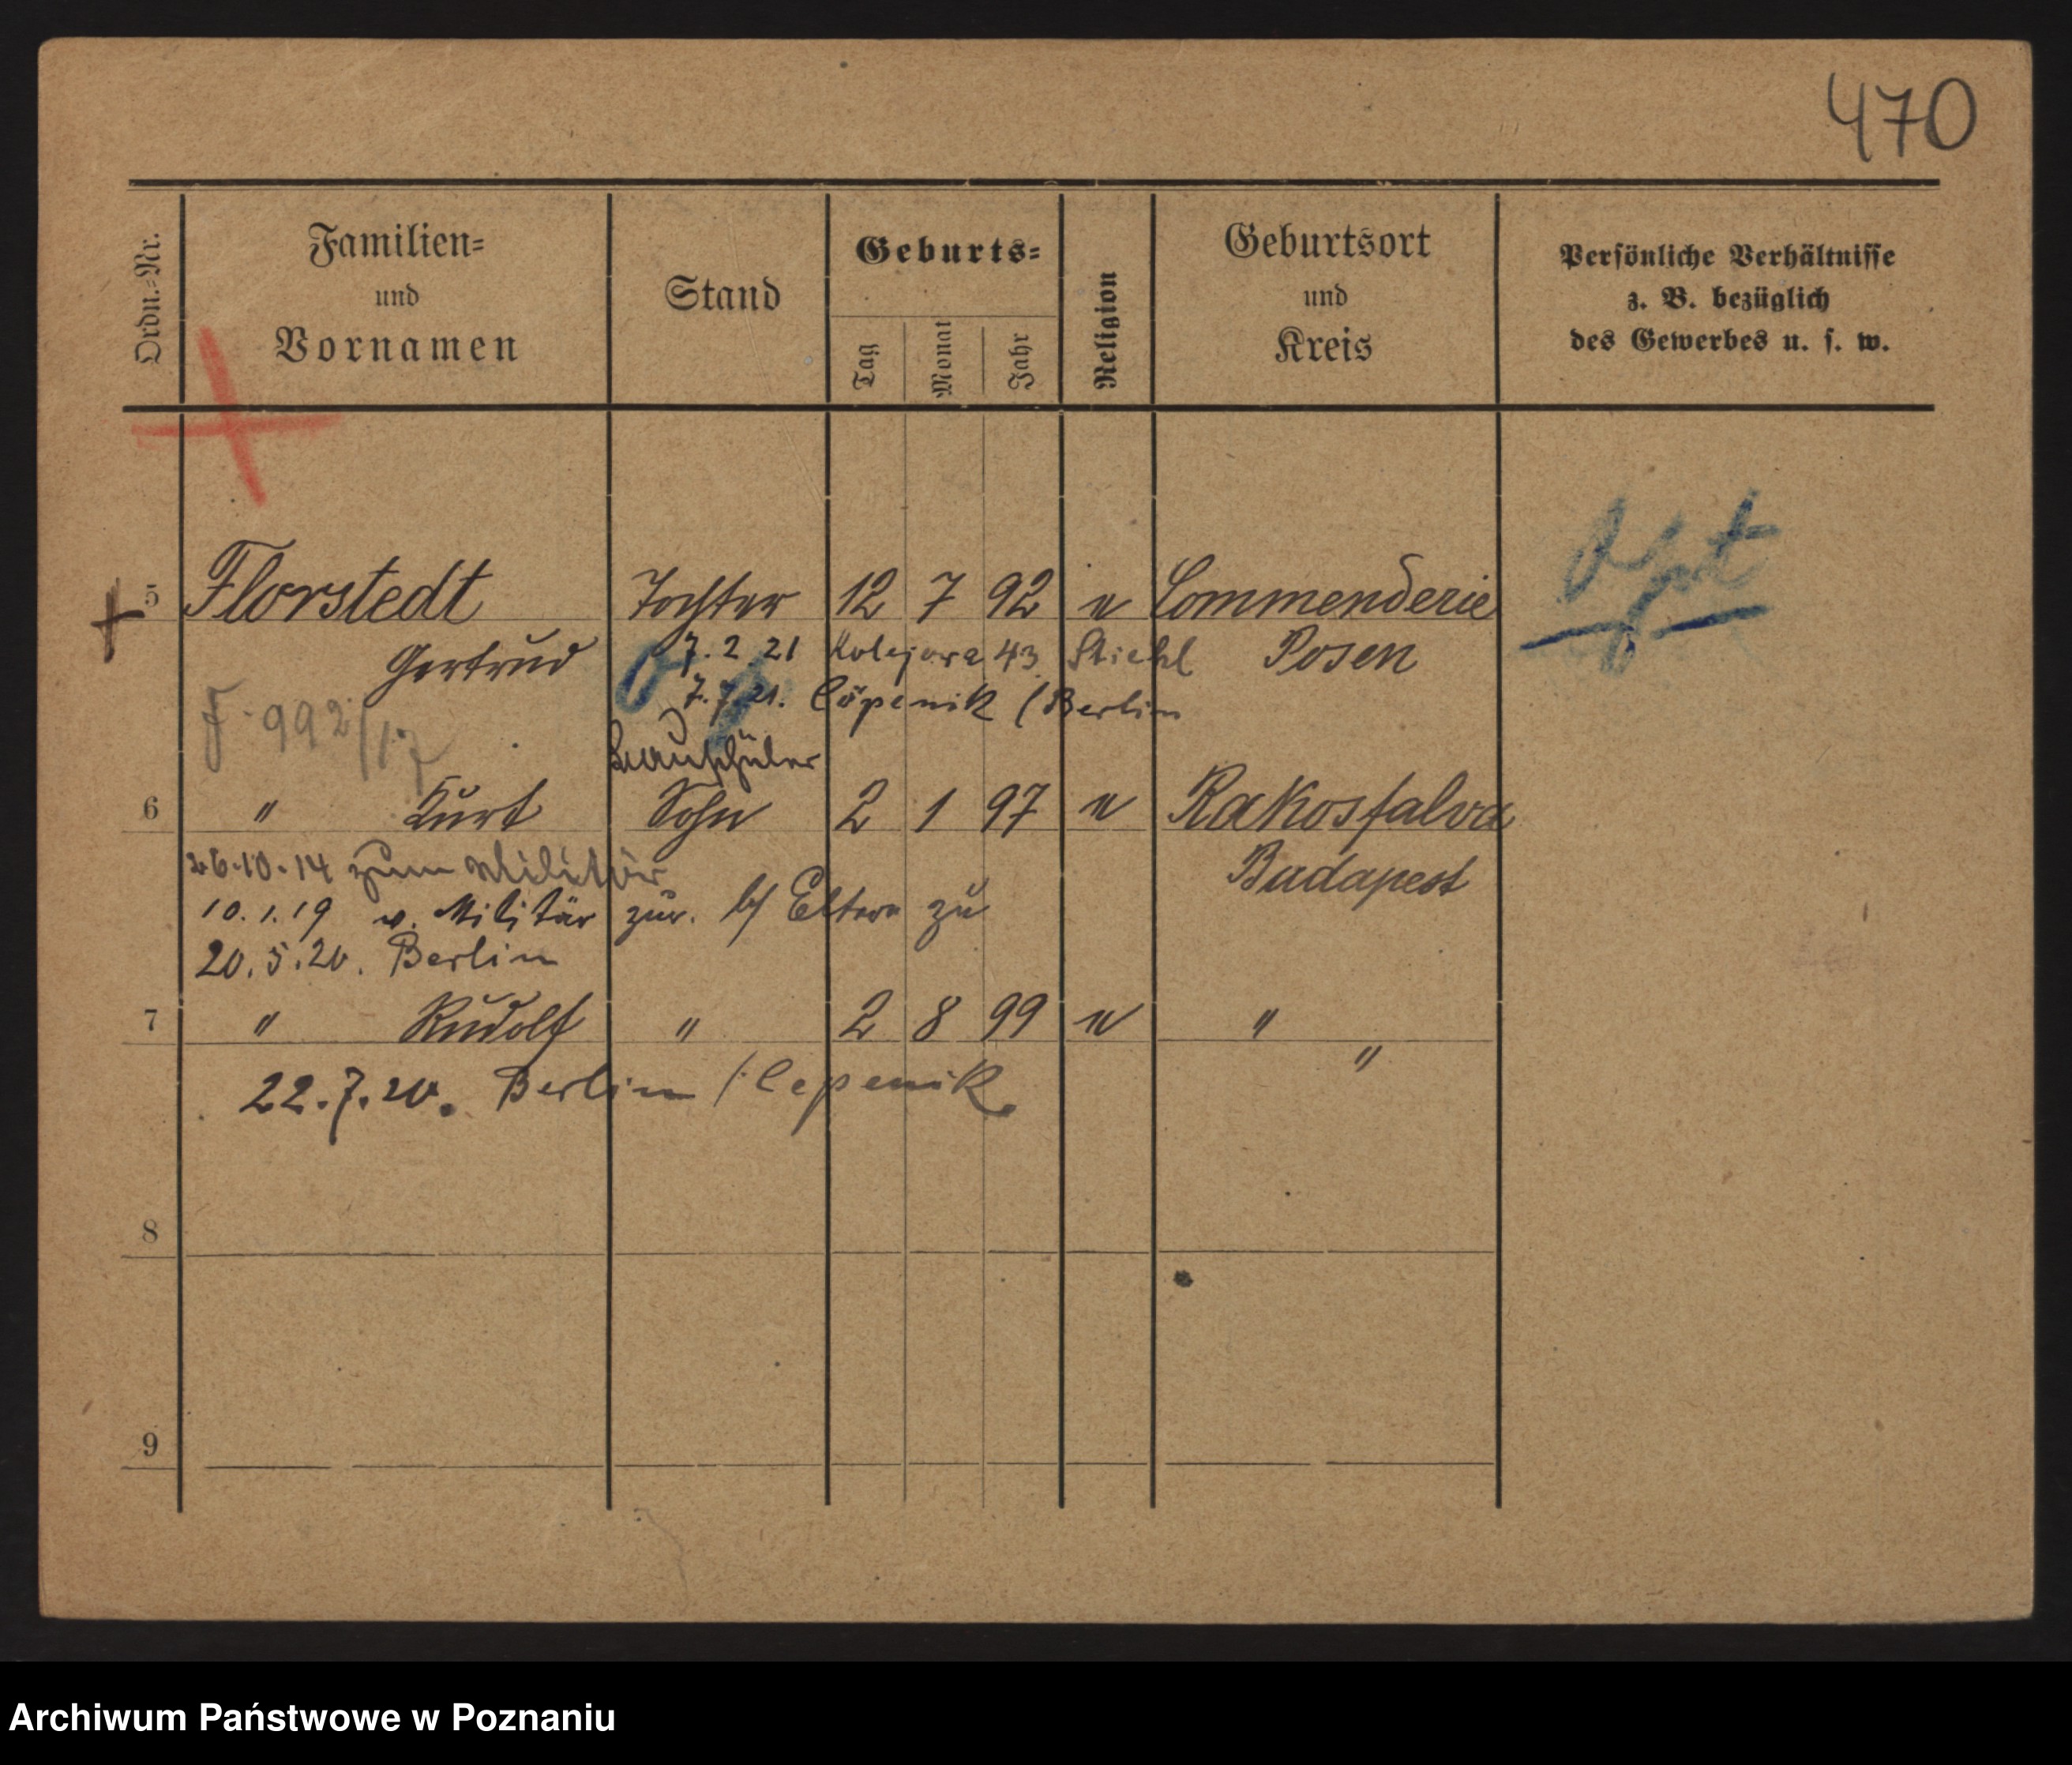 470
Ordn.-Nr.
Familien-
und
Vornamen
Stand
Geburts-
Tag
Monat
Jahr
Religion
Geburtsort
und
Kreis
Persönliche Verhältnisse
z. B. bezüglich
des Gewerbes u. s. w.
Opt
5 Florstedt Tochter 12 7 92 e Commenderie
Gertrud 7.2.21 Kolejowa 43 Stiehl Posen
7.7.21. Cöpenik (Berlin
F. 992/17
6 " Kurt Sohn 2 1 97 e Rakosfalva
26.10.14 zum Militär Budapest
10.1.19 v. Militär zur. b/ Eltern zu
20.5.20. Berlin
7 " Rudolf " 2 8 99 e " "
22.7.20. Berlin /: Cepenik.
8
9
Archiwum Państwowe w Poznaniu